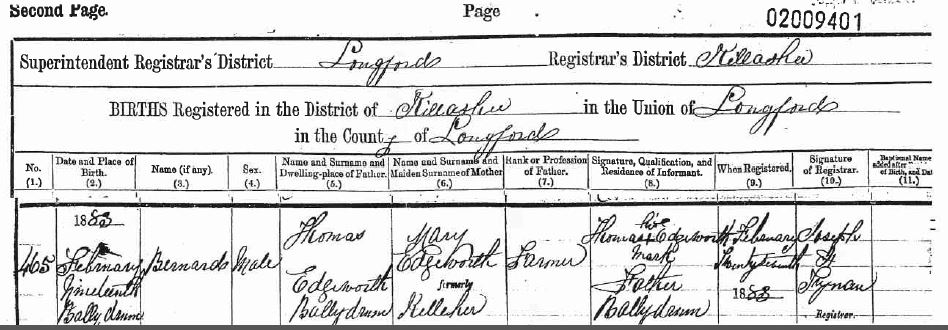 Second Page.
Page
02009401
Superintendent Registrar's District Longford Registrar's District Killashee
BIRTHS Registered in the District of Killashee in the Union of Longford
in the County of Longford
No. (1.)
Date and Place of Birth. (2.)
Name (if any). (3.)
Sex. (4.)
Name and Surname and Dwelling-place of Father. (5.)
Name and Surname and Maiden Surname of Mother (6.)
Rank or Profession of Father. (7.)
Signature, Qualification, and Residence of Informant. (8.)
When Registered. (9.)
Signature of Registrar. (10.)
Baptismal Name
added after
of Birth, and Dat
(11.)
465
1883
February
Nineteenth
Ballydrum
Bernard
Male
Thomas
Edgeworth
Ballydrum
Mary
Edgeworth
formerly
Kelleher
Farmer
Thomas his Edgeworth
Mark
Father
Ballydrum
February
1883
Joseph
Tynan
Registrar.